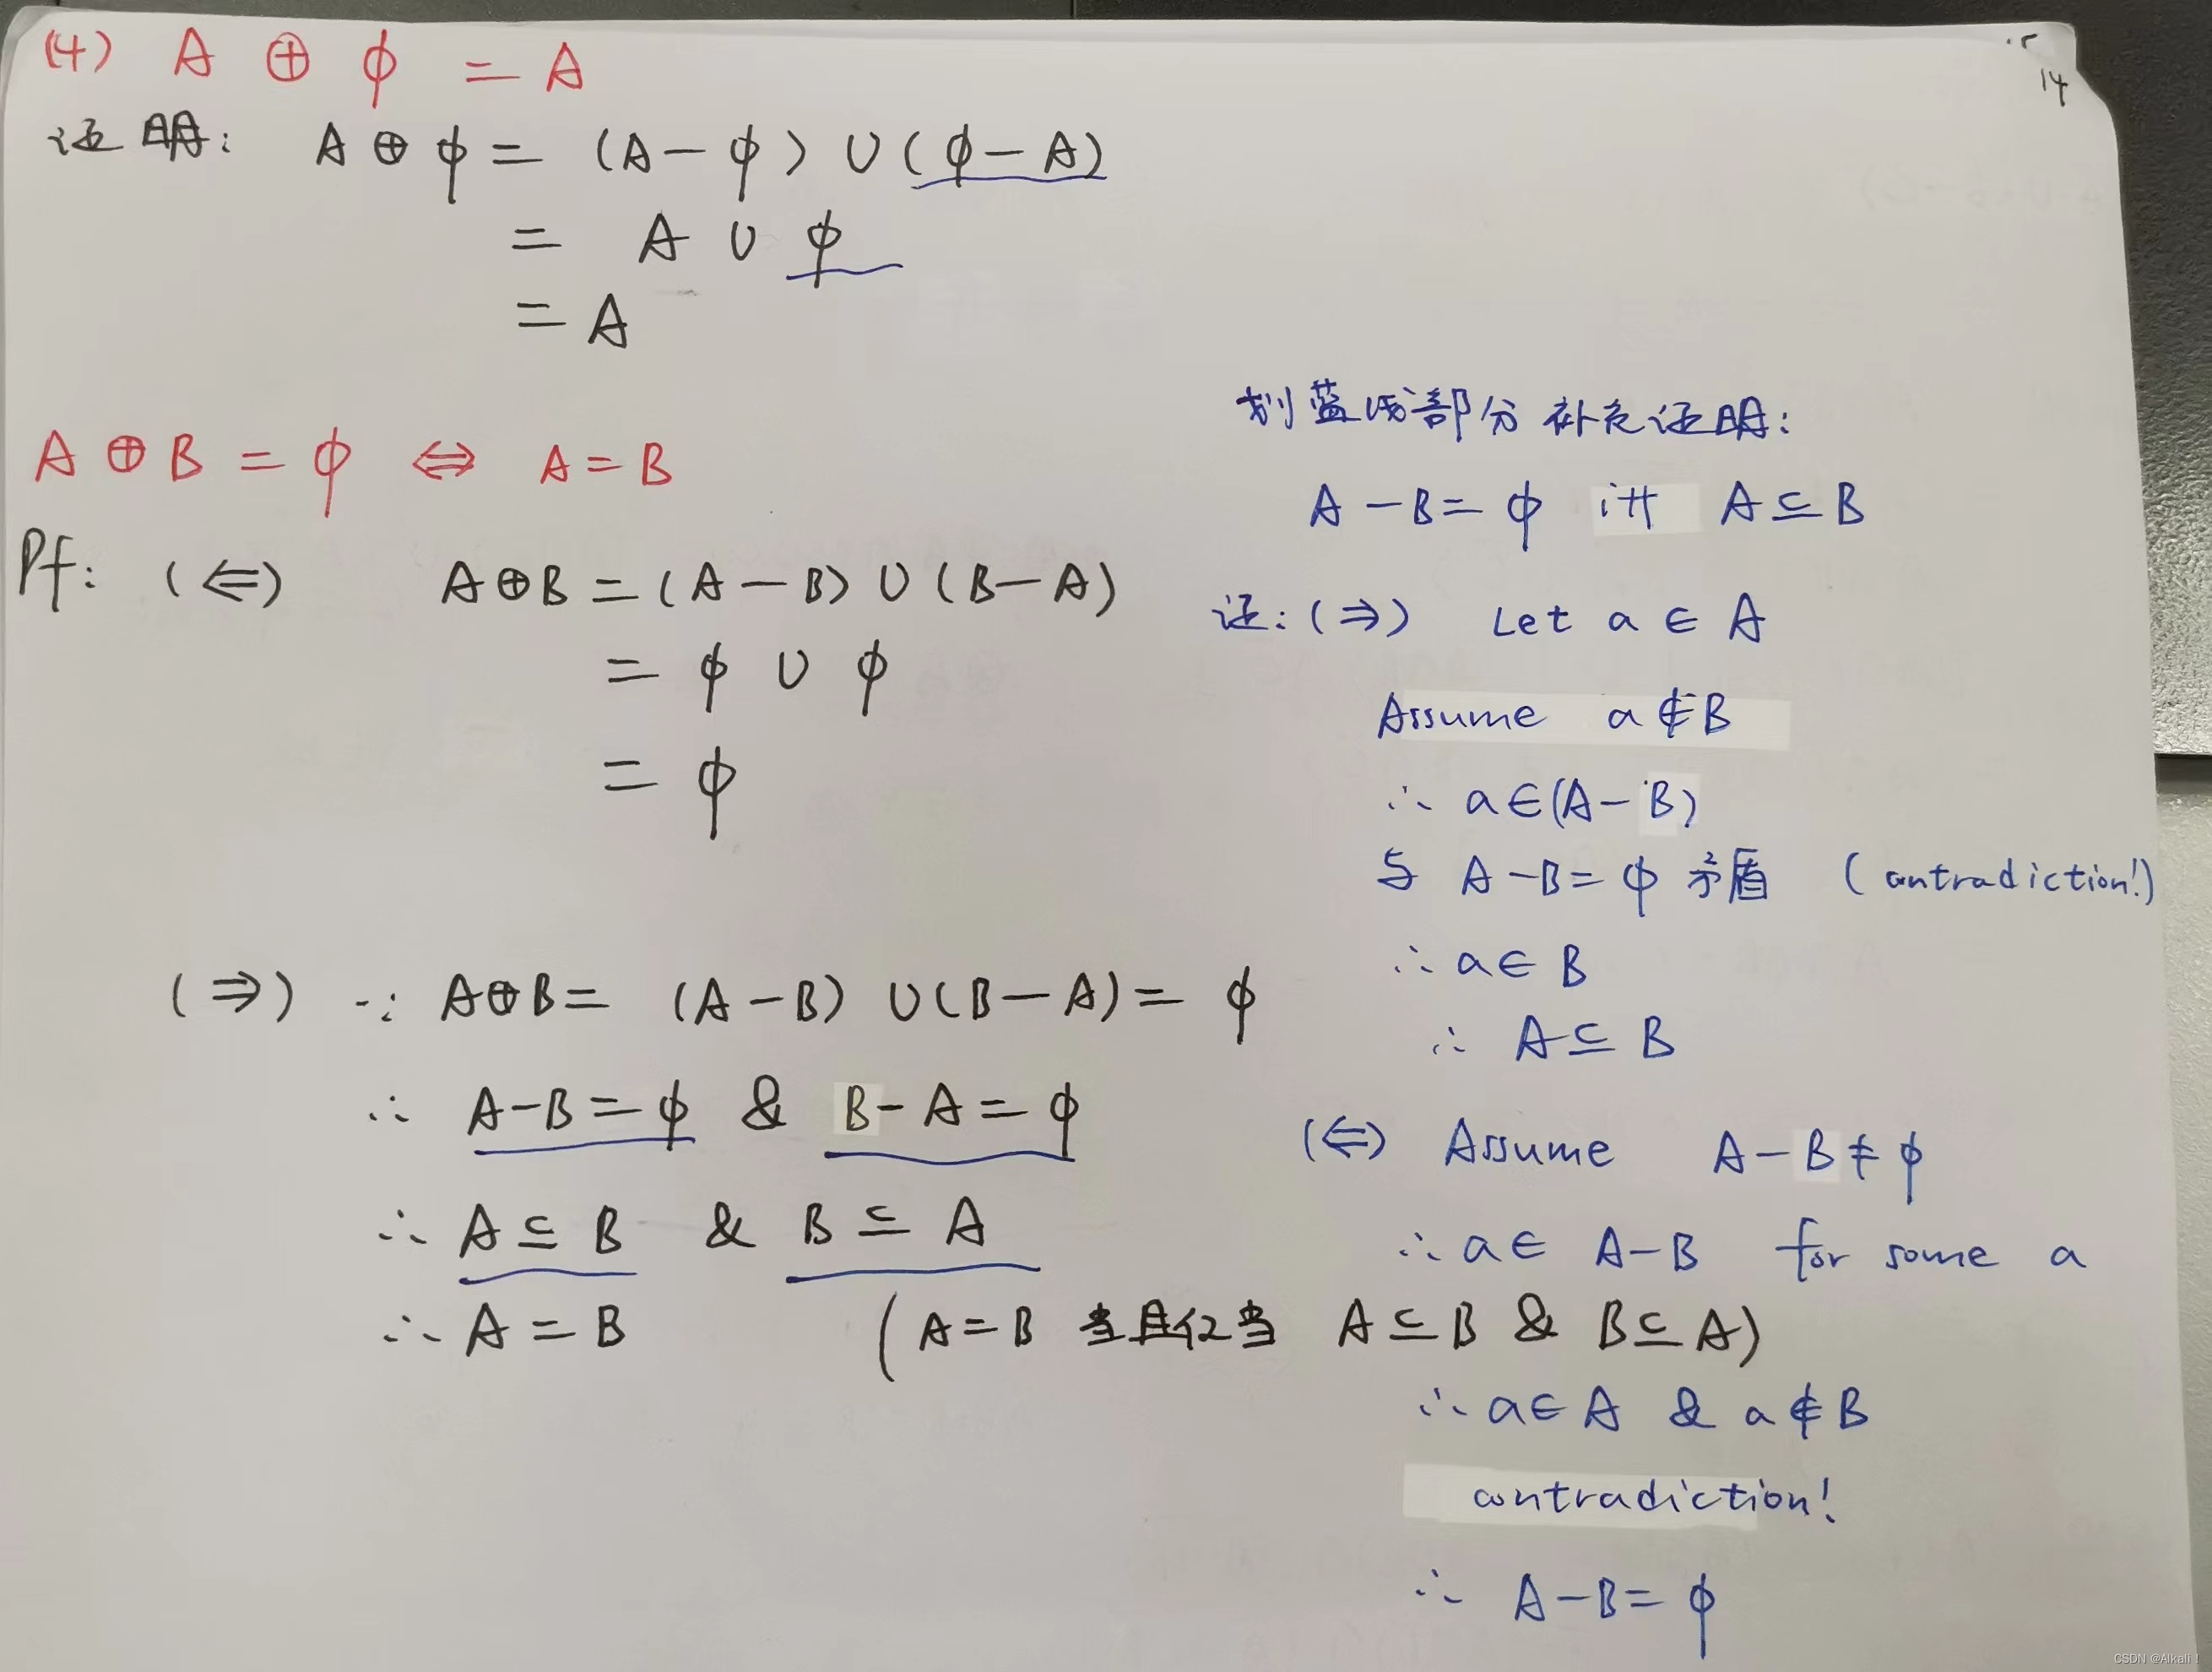 (4) A ⊕ ϕ = A
14
证明: A ⊕ ϕ = (A - ϕ) ∪ (ϕ - A)
= A ∪ ϕ
= A
A ⊕ B = ϕ ⇔ A = B
Pf: (⇐) A⊕B = (A - B) ∪ (B - A)
= ϕ ∪ ϕ
= ϕ
(⇒) ∵ A⊕B = (A - B) ∪ (B - A) = ϕ
∴ A-B = ϕ & B-A = ϕ
∴ A ⊆ B & B ⊆ A
∴ A = B (A = B 当且仅当 A ⊆ B & B ⊆ A)
划蓝线部分补充证明:
A - B = ϕ iff A ⊆ B
证: (⇒) Let a ∈ A
Assume a ∉ B
∴ a ∈ (A - B)
与 A - B = ϕ 矛盾 (contradiction!)
∴ a ∈ B
∴ A ⊆ B
(⇐) Assume A - B ≠ ϕ
∴ a ∈ A - B for some a
∴ a ∈ A & a ∉ B
contradiction!
∴ A - B = ϕ
CSDN @Alkali!